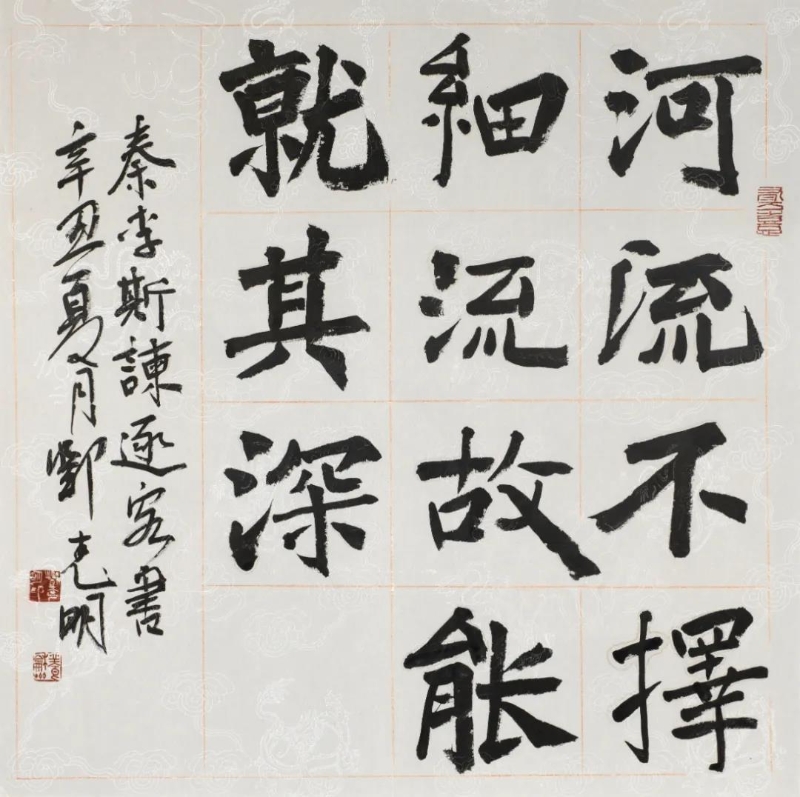 河流不擇
細流故能
就其深
秦李斯諫逐客書
辛丑夏月鄭克明